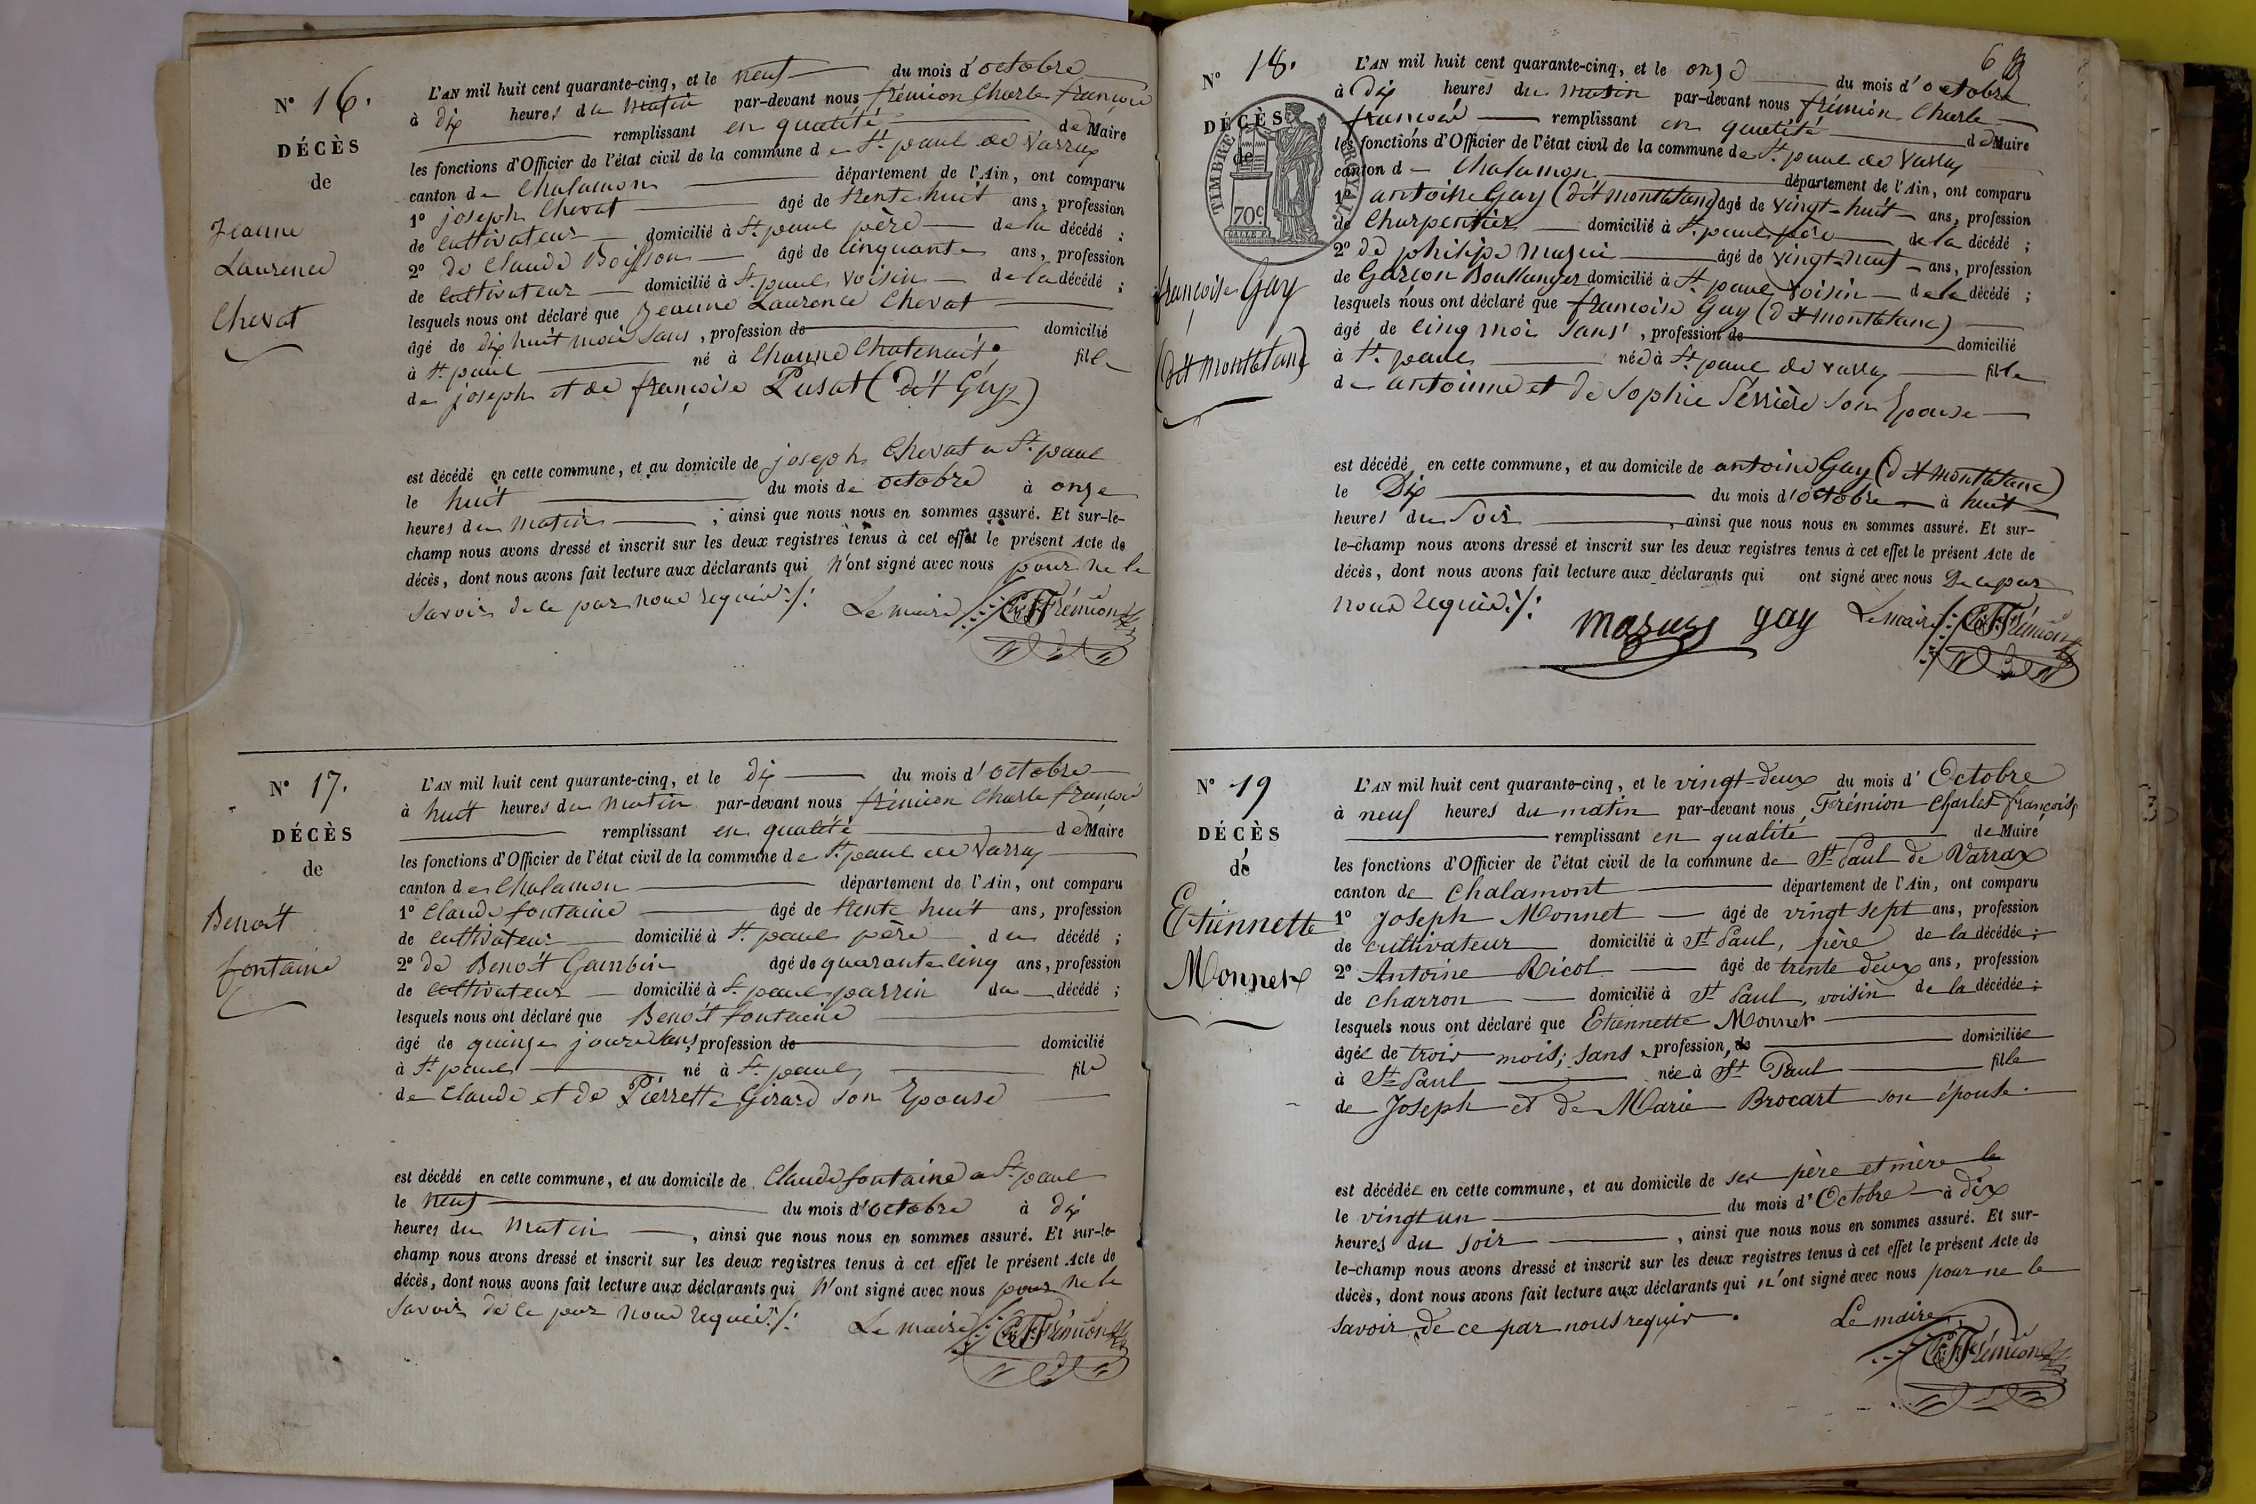 N° 16.
DÉCÈS
de
Jeanne
Laurence
Chevat
L'AN mil huit cent quarante-cinq, et le neuf du mois d'octobre
à dix heures du matin par-devant nous frémion Charle françois
remplissant en qualité de Maire
les fonctions d'Officier de l'état civil de la commune de St. paul de Varrax
canton de Chalamon département de l'Ain, ont comparu
1° joseph Chevat âgé de trente huit ans, profession
de cultivateur domicilié à St. paul père de la décédé ;
2° de Claude Boisson âgé de cinquante ans, profession
de cultivateur domicilié à St. paul voisin de la décédé ;
lesquels nous ont déclaré que Jeanne Laurence Chevat
âgé de dix huit mois sans, profession de domicilié
à St. paul né à Chatenait fille
de joseph et de françoise Pusat (dit Guy)
est décédé en cette commune, et au domicile de joseph Chevat a St. paul
le huit du mois de octobre à onze
heures du matin, ainsi que nous nous en sommes assuré. Et sur-le-
champ nous avons dressé et inscrit sur les deux registres tenus à cet effet le présent Acte de
décès, dont nous avons fait lecture aux déclarants qui N'ont signé avec nous pour ne le
savoir de ce par nous requis ./.
Le maire Ch. F. Frémion
N° 17.
DÉCÈS
de
Benoit
fontaine
L'AN mil huit cent quarante-cinq, et le dix du mois d'octobre
à huit heures du matin par-devant nous frémion Charle françois
remplissant en qualité de Maire
les fonctions d'Officier de l'état civil de la commune de St. paul de Varrax
canton de Chalamon département de l'Ain, ont comparu
1° Claude fontaine âgé de trente huit ans, profession
de cultivateur domicilié à St. paul père du décédé ;
2° de Benoit Gambin âgé de quarante cinq ans, profession
de cultivateur domicilié à St. paul parrin du décédé ;
lesquels nous ont déclaré que Benoit fontaine
âgé de quinze jours sans, profession de domicilié
à St. paul né à St. paul fils
de Claude et de Pierrette Girard son Epouse
est décédé en cette commune, et au domicile de Claude fontaine a St. paul
le neuf du mois d'octobre à dix
heures du matin, ainsi que nous nous en sommes assuré. Et sur-le-
champ nous avons dressé et inscrit sur les deux registres tenus à cet effet le présent Acte de
décès, dont nous avons fait lecture aux déclarants qui N'ont signé avec nous pour ne le
savoir de ce par nous requis ./.
Le maire Ch. F. Frémion
6
N° 18.
DÉCÈS
de
TIMBRE ROYAL
70c
françoise Gay
(dit montbtanc)
L'AN mil huit cent quarante-cinq, et le onze du mois d'octobre
à Dix heures du matin par-devant nous frémion Charle
françois remplissant en qualité de Maire
les fonctions d'Officier de l'état civil de la commune de St. paul de Varrax
canton de Chalamon département de l'Ain, ont comparu
1° antoine Gay (dit montbtanc) âgé de vingt-huit ans, profession
de Charpentier domicilié à St. paul père de la décédé ;
2° de philipe mazui âgé de vingt-neuf ans, profession
de Garcon Boullanger domicilié à St. paul voisin de la décédé ;
lesquels nous ont déclaré que françoise Gay (dit montbtanc)
âgé de cinq moi sans, profession de domicilié
à St. paul née à St. paul de varrax fille
de antoinne et de Sophie Perrière son Epouse
est décédé en cette commune, et au domicile de antoine Gay (dit montbtanc)
le Dix du mois d'octobre à huit
heures du soir, ainsi que nous nous en sommes assuré. Et sur-
le-champ nous avons dressé et inscrit sur les deux registres tenus à cet effet le présent Acte de
décès, dont nous avons fait lecture aux déclarants qui ont signé avec nous De ce par
nous requis ./.
mazuy gay Le maire Ch. F. Frémion
N° 19
DÉCÈS
de
Etiennette
Monnet
L'AN mil huit cent quarante-cinq, et le vingt-deux du mois d'Octobre
à neuf heures du matin par-devant nous, Frémion Charles françois,
remplissant en qualité de Maire
les fonctions d'Officier de l'état civil de la commune de St. Paul de Varrax
canton de Chalamont département de l'Ain, ont comparu
1° Joseph Monnet âgé de vingt sept ans, profession
de cultivateur domicilié à St. Paul, père de la décédée ;
2° Antoine Ricol âgé de trente deux ans, profession
de charron domicilié à St. Paul, voisin de la décédée ;
lesquels nous ont déclaré que Etiennette Monnet
âgée de trois mois, sans profession, de domiciliée
à St. Paul née à St. Paul fille
de Joseph et de Marie Brocart son épouse.
est décédée en cette commune, et au domicile de ses père et mère le
le vingt un du mois d'Octobre à dix
heures du soir, ainsi que nous nous en sommes assuré. Et sur-
le-champ nous avons dressé et inscrit sur les deux registres tenus à cet effet le présent Acte de
décès, dont nous avons fait lecture aux déclarants qui n'ont signé avec nous pour ne le
savoir, de ce par nous requis.
Le maire
Ch. F. Frémion